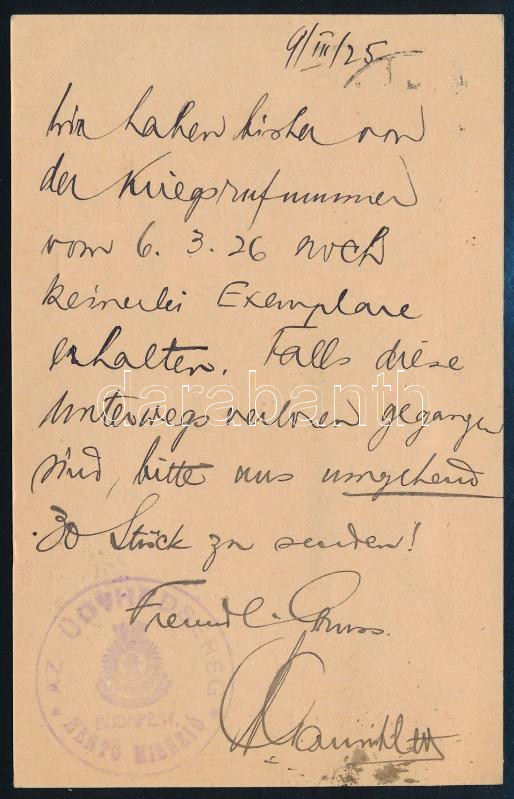 9/III/25
Wir haben bisher von
der Kriegsrufnummer
vom 6. 3. 26 noch
keinerlei Exemplare
erhalten. Falls diese
unterwegs verloren gegangen
sind, bitte uns umgehend
30 Stück zu senden!
Freundl. Gruss.
darabanth
AZ ÜDVHADSEREG
BUDAPEST.
MENTŐ MISSZIÓ